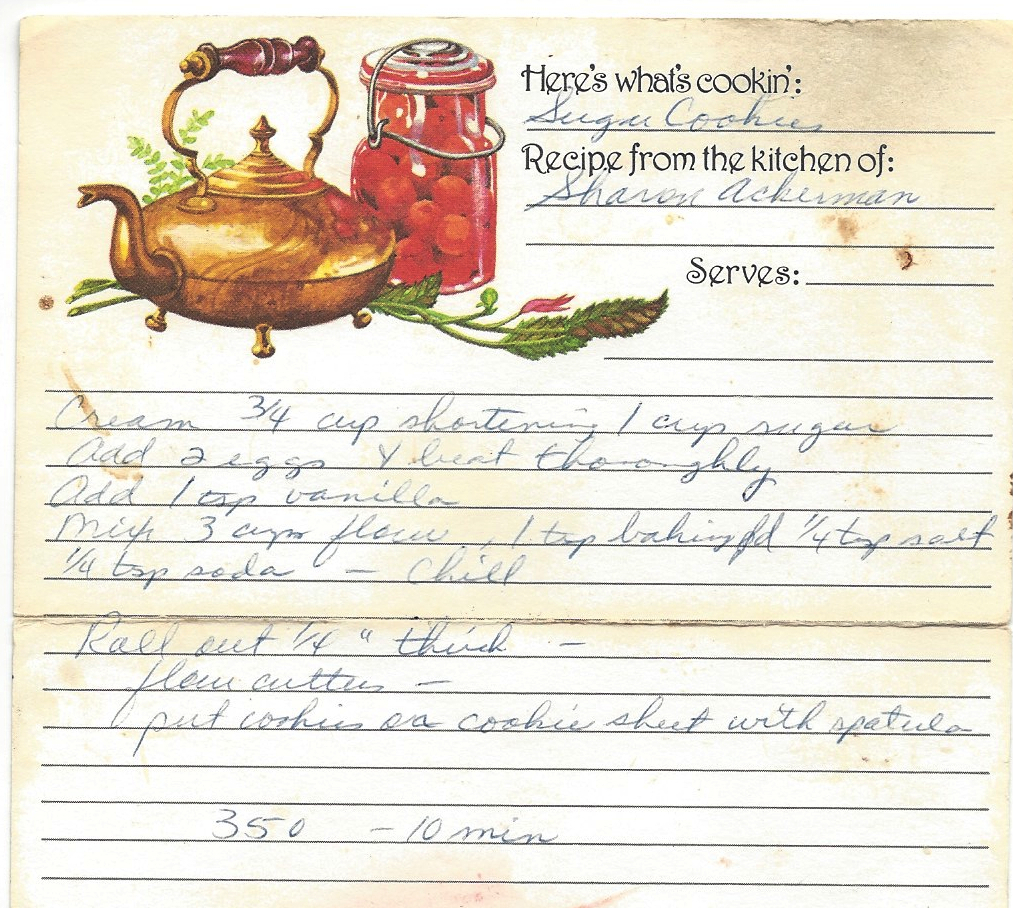 Here's what's cookin':
Sugar Cookies
Recipe from the kitchen of:
Sharon Ackerman
Serves:
Cream 3/4 cup shortening 1 cup sugar
Add 2 eggs & beat thoroughly
Add 1 tsp vanilla
Mix 3 cups flour, 1 tsp baking pd 1/4 tsp salt
1/4 tsp soda - Chill
Roll out 1/4 " thick -
flour cutters -
put cookies on cookie sheet with spatula
350 - 10 min